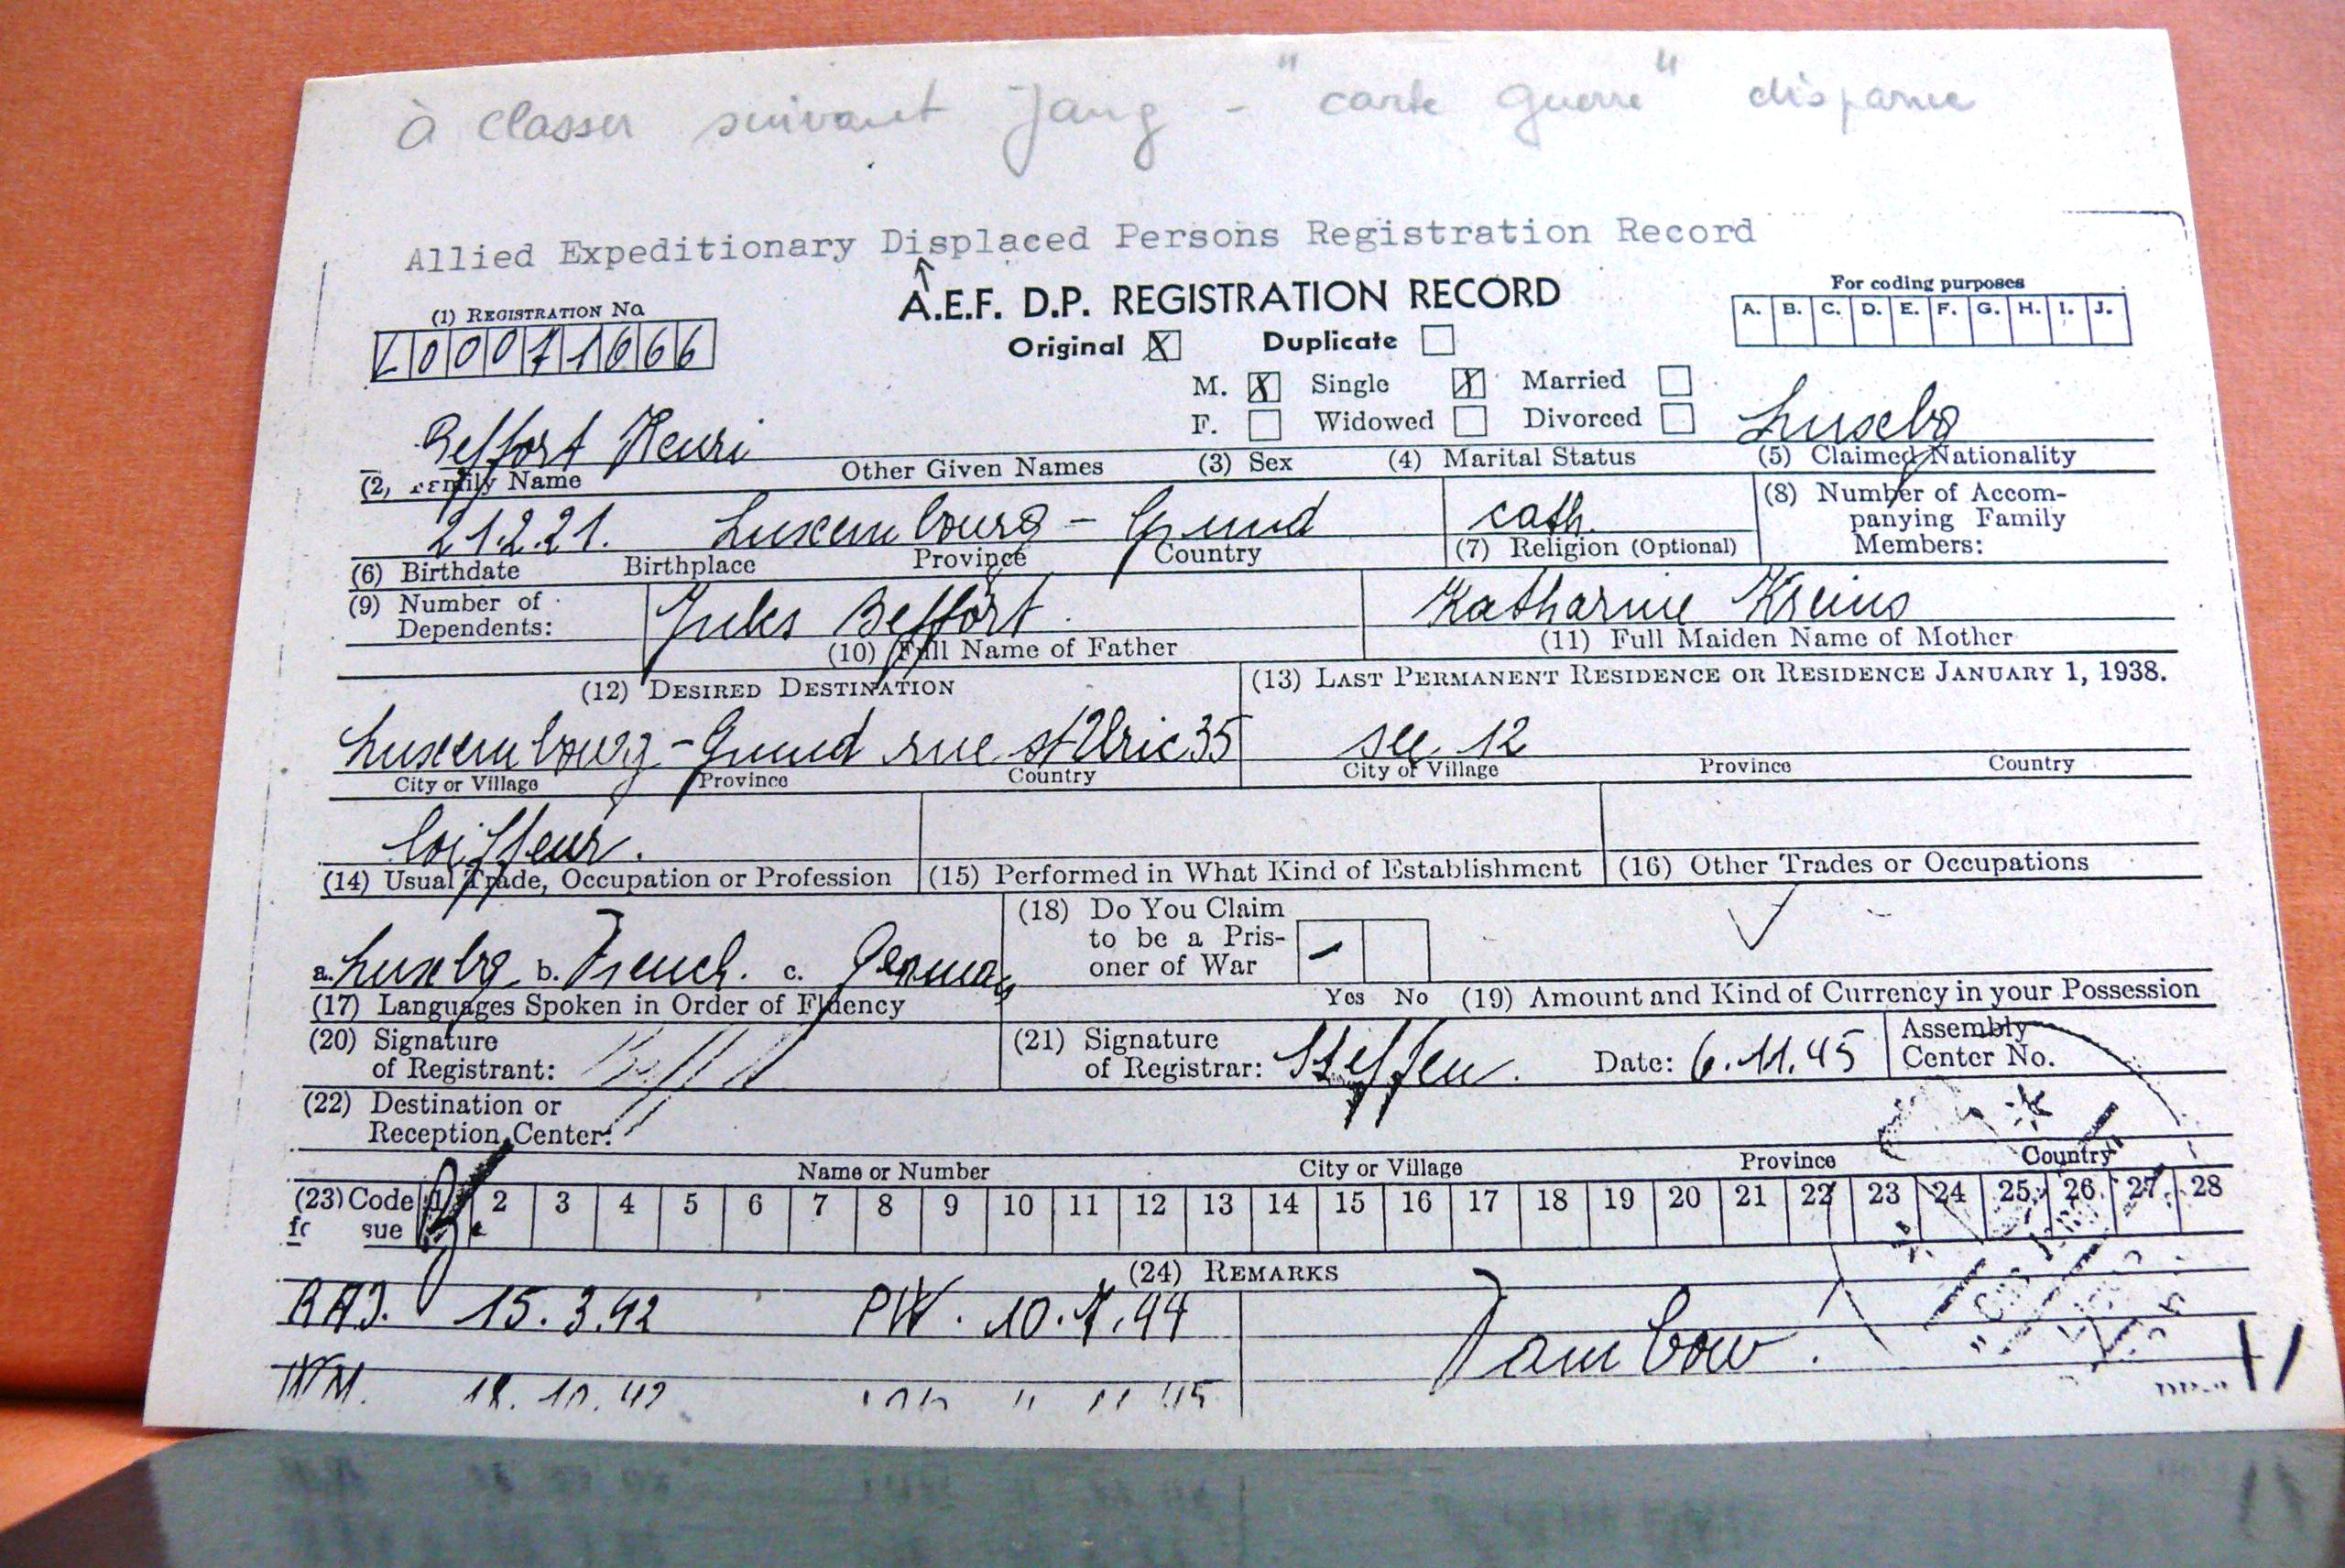 à classer suivant Jang - "carte guerre" disparue
Allied Expeditionary Displaced Persons Registration Record
A.E.F. D.P. REGISTRATION RECORD
For coding purposes
A. B. C. D. E. F. G. H. I. J.
(1) REGISTRATION No
L00071666
Original X Duplicate
M. X Single X Married
F. Widowed Divorced
Beffort Henri Luxebg
(2, Family Name Other Given Names (3) Sex (4) Marital Status (5) Claimed Nationality
21.2.21. Luxembourg - Grund cath.
(6) Birthdate Birthplace Province Country (7) Religion (Optional)
(8) Number of Accom-
panying Family
Members:
(9) Number of
Dependents:
Jules Beffort. Katharine Kreins
(10) Full Name of Father (11) Full Maiden Name of Mother
(12) DESIRED DESTINATION (13) LAST PERMANENT RESIDENCE OR RESIDENCE JANUARY 1, 1938.
Luxembourg - Grund rue st Ulric 35 see 12
City or Village Province Country City or Village Province Country
Coiffeur.
(14) Usual Trade, Occupation or Profession (15) Performed in What Kind of Establishment (16) Other Trades or Occupations
a. Luxebg b. French. c. German
(17) Languages Spoken in Order of Fluency
(18) Do You Claim
to be a Pris-
oner of War
Yes No (19) Amount and Kind of Currency in your Possession
(20) Signature
of Registrant:
(21) Signature
of Registrar: Steffen. Date: 6.11.45
Assembly
Center No.
(22) Destination or
Reception Center:
Name or Number City or Village Province Country
(23) Code 1 2 3 4 5 6 7 8 9 10 11 12 13 14 15 16 17 18 19 20 21 22 23 24 25 26 27 28
sue
(24) REMARKS
RAD. 15.3.42 PW. 10.7.44 Tambow.
WM. 18.10.42